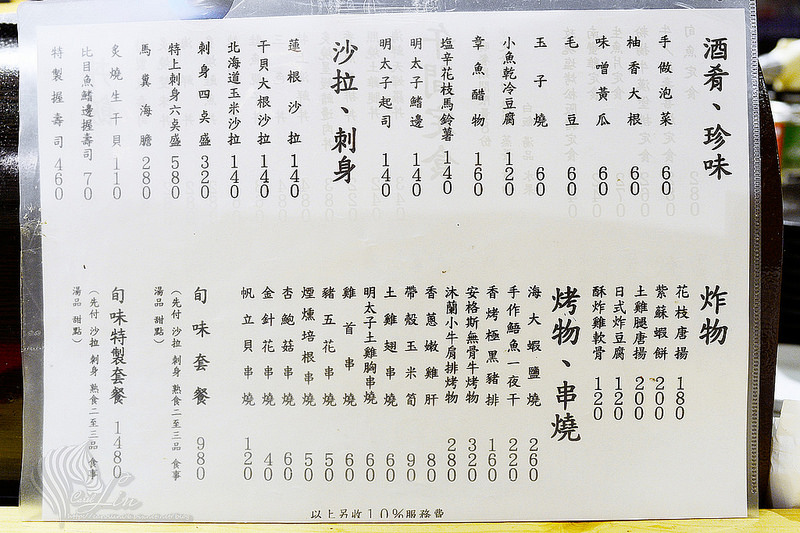 酒肴、珍味
手做泡菜 60
柚香大根 60
味噌黃瓜 60
毛豆 60
玉子燒 60
小魚乾冷豆腐 120
章魚醋物 160
塩辛花枝馬鈴薯 140
明太子鰭邊 140
明太子起司 140
沙拉、刺身
蓮根沙拉 140
干貝大根沙拉 140
北海道玉米沙拉 140
刺身四點盛 320
特上刺身六點盛 580
馬糞海膽 280
炙燒生干貝 110
比目魚鰭邊握壽司 70
特製握壽司 460
炸物
花枝唐揚 180
紫蘇蝦餅 200
土雞腿唐揚 200
日式炸豆腐 120
酥炸雞軟骨 120
烤物、串燒
海大蝦鹽燒 260
手作鯃魚一夜干 220
香烤極黑豬排 160
安格斯無骨牛烤物 320
沐蘭小牛肩排烤物 280
香蔥嫩雞肝 80
帶殼玉米筍 90
土雞翅串燒 60
明太子土雞胸串燒 60
雞首串燒 60
豬五花串燒 50
煙燻培根串燒 50
杏鮑菇串燒 60
金針花串燒 40
帆立貝串燒 120
旬味套餐 980
（先付 沙拉 刺身 熟食二至三品 食事
湯品 甜點）
旬味特製套餐 1480
（先付 沙拉 刺身 熟食二至三品 食事
湯品 甜點）
以上另收10%服務費